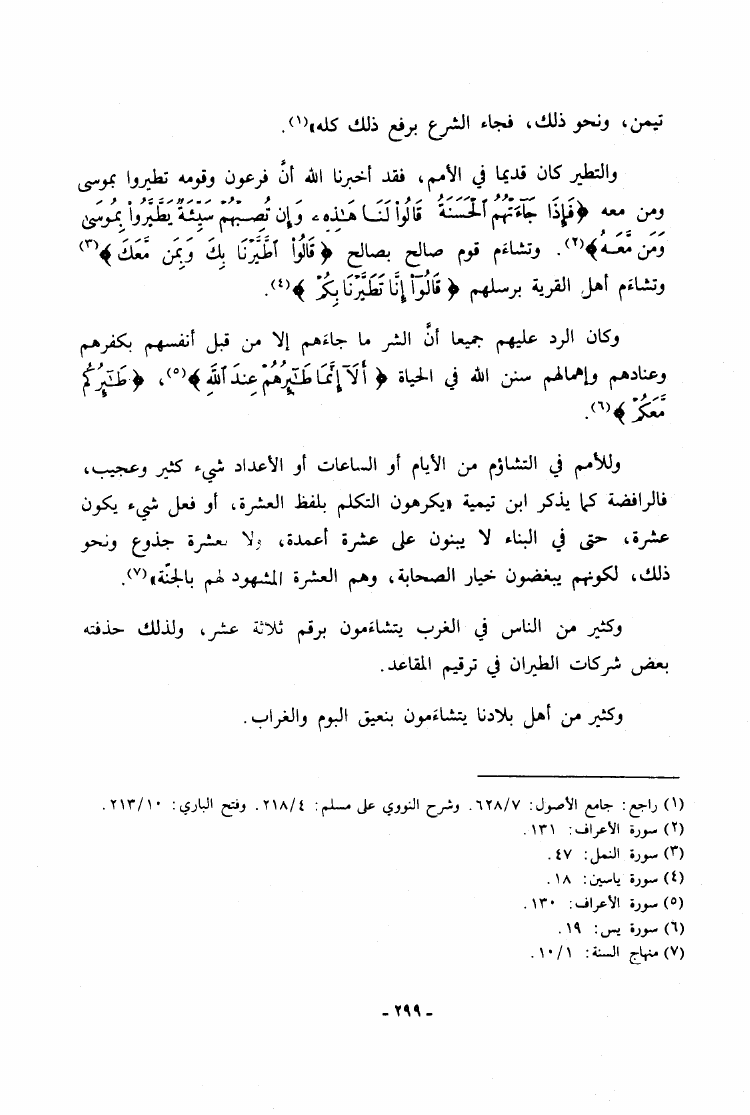 تيمن، ونحو ذلك، فجاء الشرع برفع ذلك كله»(١).
والتطير كان قديما في الأمم، فقد أخبرنا الله أنَّ فرعون وقومه تطيروا بموسى
ومن معه ﴿فَإِذَا جَآءَتْهُمُ ٱلْحَسَنَةُ قَالُوا۟ لَنَا هَـٰذِهِۦ وَإِن تُصِبْهُمْ سَيِّئَةٌ يَطَّيَّرُوا۟ بِمُوسَىٰ
وَمَن مَّعَهُۥٓ﴾(٢). وتشاءم قوم صالح بصالح ﴿قَالُوا۟ ٱطَّيَّرْنَا بِكَ وَبِمَن مَّعَكَ﴾(٣)
وتشاءم أهل القرية برسلهم ﴿قَالُوٓا۟ إِنَّا تَطَيَّرْنَا بِكُمْ﴾(٤).
وكان الرد عليهم جميعا أنَّ الشر ما جاءهم إلا من قبل أنفسهم بكفرهم
وعنادهم وإهمالهم سنن الله في الحياة ﴿أَلَآ إِنَّمَا طَـٰٓئِرُهُمْ عِندَ ٱللَّهِ﴾(٥)، ﴿طَـٰٓئِرُكُم
مَّعَكُمْ﴾(٦).
وللأمم في التشاؤم من الأيام أو الساعات أو الأعداد شيء كثير وعجيب،
فالرافضة كما يذكر ابن تيمية «يكرهون التكلم بلفظ العشرة، أو فعل شيء يكون
عشرة، حتى في البناء لا يبنون على عشرة أعمدة، ولا بعشرة جذوع ونحو
ذلك، لكونهم يبغضون خيار الصحابة، وهم العشرة المشهود لهم بالجنّة»(٧).
وكثير من الناس في الغرب يتشاءمون برقم ثلاثة عشر، ولذلك حذفته
بعض شركات الطيران في ترقيم المقاعد.
وكثير من أهل بلادنا يتشاءمون بنعيق البوم والغراب.
(١) راجع: جامع الأصول: ٦٢٨/٧. وشرح النووي على مسلم: ٢١٨/٤. وفتح الباري: ٢١٣/١٠.
(٢) سورة الأعراف: ١٣١.
(٣) سورة النمل: ٤٧.
(٤) سورة ياسين: ١٨.
(٥) سورة الأعراف: ١٣٠.
(٦) سورة يس: ١٩.
(٧) منهاج السنة: ١٠/١.
- ٢٩٩ -